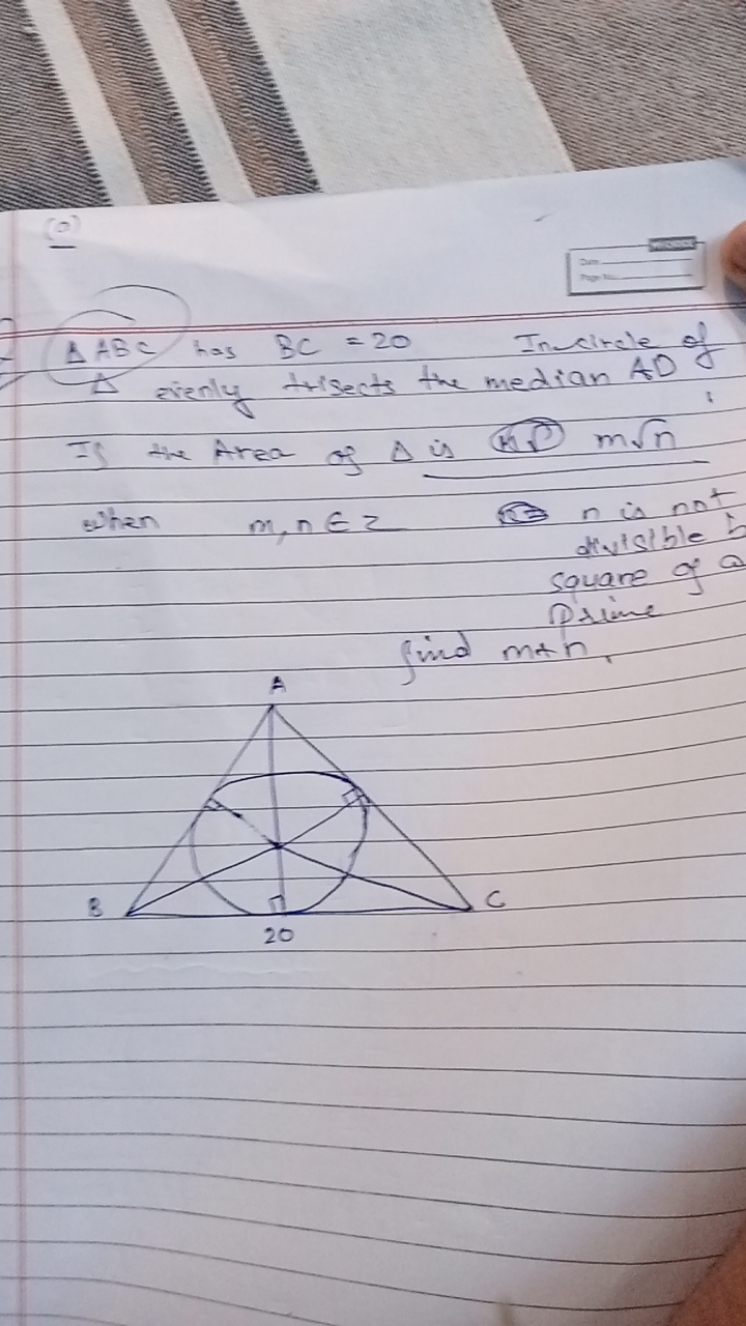 (0)
Date
Page No.
Δ ABC has BC = 20 Incircle of
Δ evenly trisects the median AD
If the Area of Δ is m√n
when m, n ∈ Z n is not
divisible b
square of a
prime
find m+n.
A
B
C
20